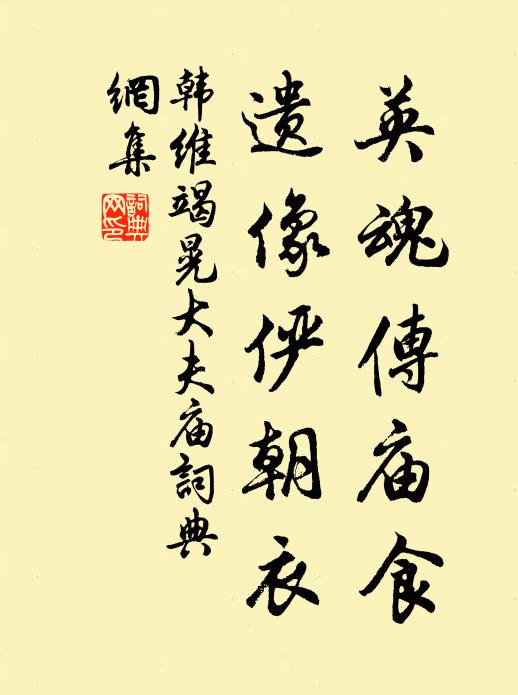 英魂傳庙食
遗像俨朝衣
韩维竭晃大夫庙詞典
網集
詞典
网印